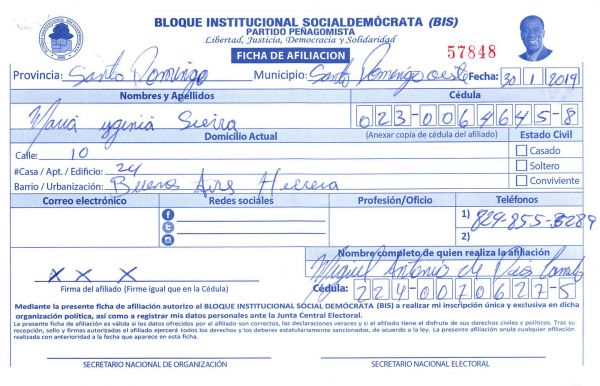 BLOQUE INSTITUCIONAL SOCIALDEMÓCRATA (BIS)
PARTIDO PEÑAGOMISTA
Libertad, Justicia, Democracia y Solidaridad
FICHA DE AFILIACION
57848
Provincia: Santo Domingo Municipio: Santo Domingo oeste Fecha: 30 1 2019
Nombres y Apellidos Cédula
Maria yginia Sierra 023-0064645-8
Domicilio Actual (Anexar copia de cédula del afiliado) Estado Civil
Calle: 10 Casado
#Casa / Apt. / Edificio: 24 Soltero
Barrio / Urbanización: Buenos Aires Herrera Conviviente
Correo electrónico Redes sociales Profesión/Oficio Teléfonos
1) 829-855-3289
2)
Nombre completo de quien realiza la afiliación
X X X Miguel Antonio de
Firma del afiliado (Firme igual que en la Cédula) Cédula: 224-0070627-5
Mediante la presente ficha de afiliación autorizo al BLOQUE INSTITUCIONAL SOCIAL DEMÓCRATA (BIS) a realizar mi inscripción única y exclusiva en dicha
organización política, así como a registrar mis datos personales ante la Junta Central Electoral.
La presente ficha de afiliación es válida si los datos ofrecidos por el afiliado son correctos, las declaraciones veraces y si el afiliado tiene el disfrute de sus derechos civiles y políticos. Tras su
recepción, sello y firmas autorizadas el afiliado ejercerá todos los derechos y los deberes estatutariamente sancionados, de acuerdo a la ley. La presente afiliación anula cualquier afiliación
realizada con anterioridad a la fecha que aparece en esta ficha.
SECRETARIO NACIONAL DE ORGANIZACIÓN SECRETARIO NACIONAL ELECTORAL